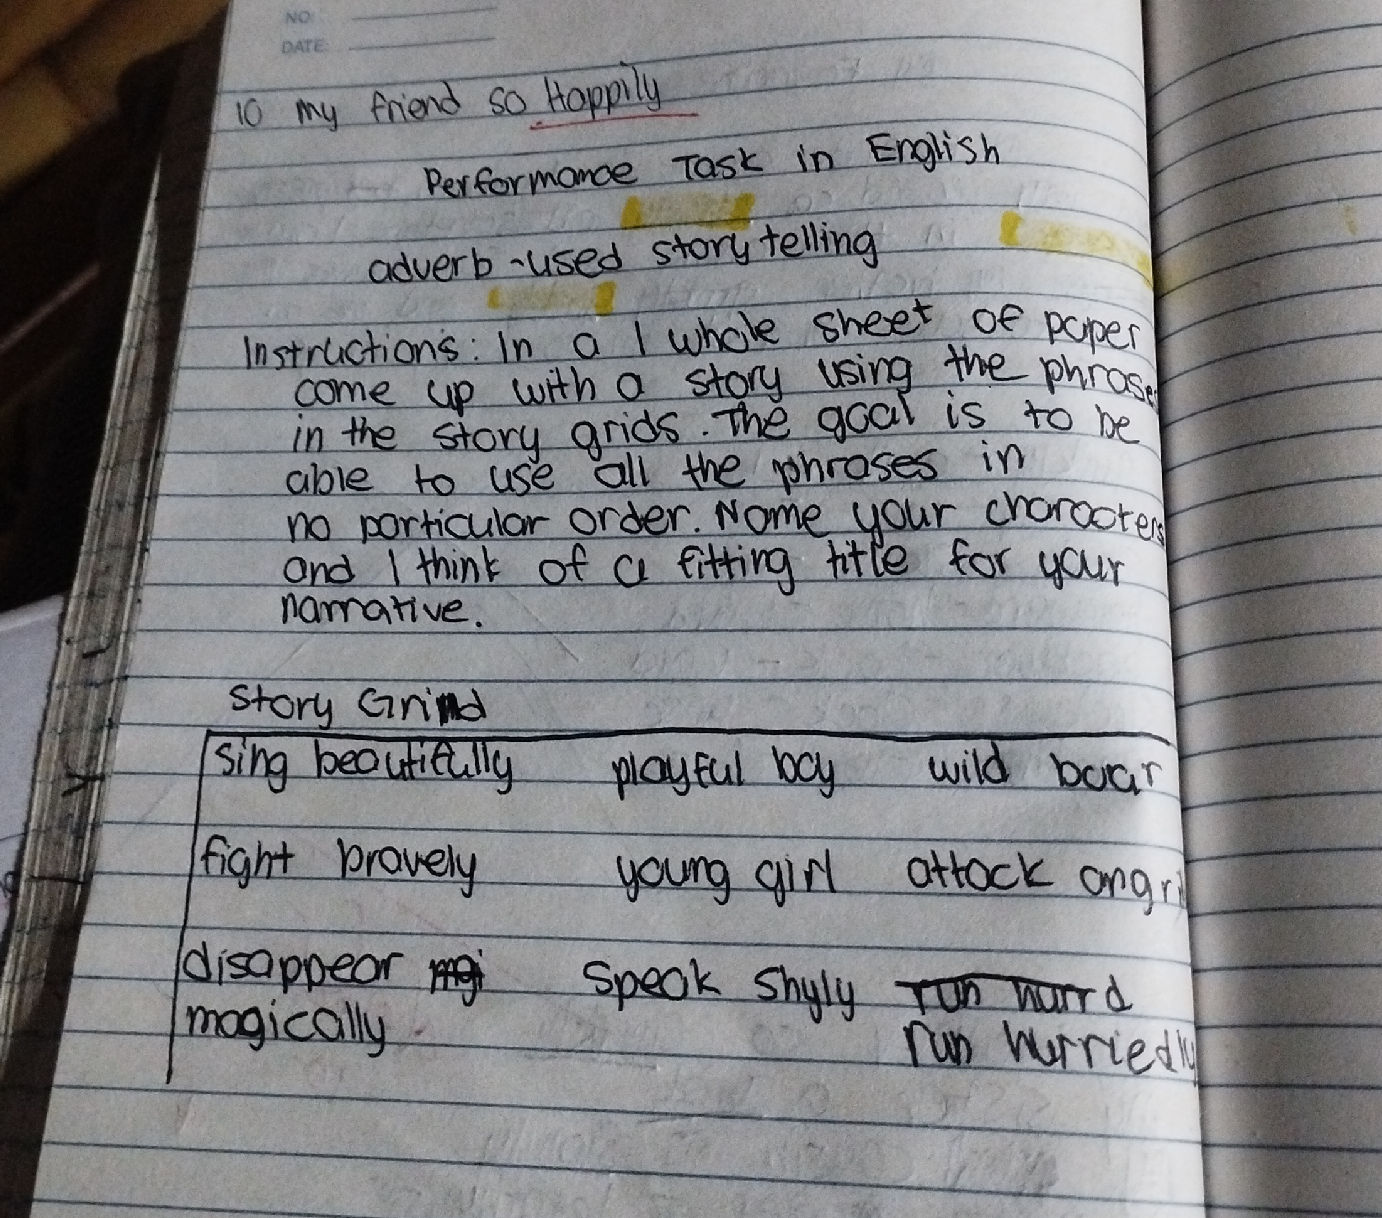 NO:
DATE:
10 my friend so Happily
Performance Task in English
adverb-used story telling
Instructions: In a 1 whole sheet of paper
come up with a story using the phrases
in the story grids. The goal is to be
able to use all the phrases in
no particular order. Name your characters
and I think of a fitting title for your
narrative.
Story Grind
sing beautifully playful boy wild boar
fight bravely young girl attack angri
disappear speak shyly
magically run hurriedly